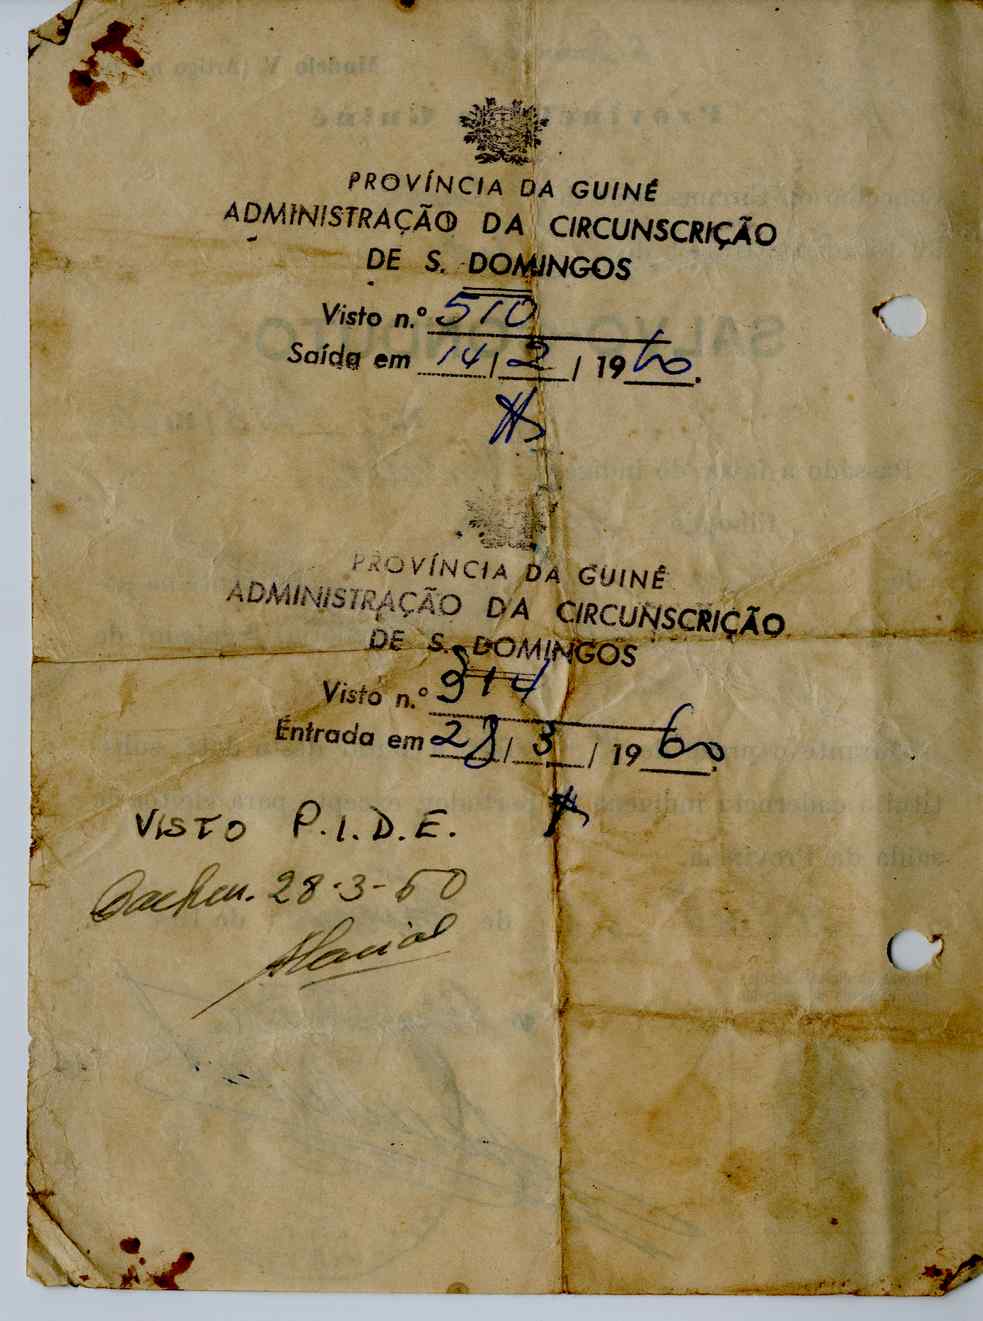 PROVÍNCIA DA GUINÉ
ADMINISTRAÇÃO DA CIRCUNSCRIÇÃO
DE S. DOMINGOS
Visto n.º 510
Saída em 14/2/1960.
PROVÍNCIA DA GUINÉ
ADMINISTRAÇÃO DA CIRCUNSCRIÇÃO
DE S. DOMINGOS
Visto n.º 914
Entrada em 28/3/1960.
VISTO P.I.D.E.
28-3-60